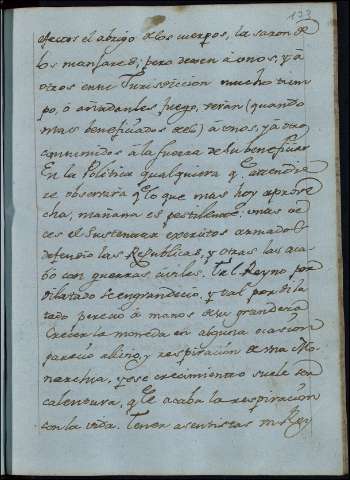 133
efectos el abrigo de los cuerpos, la sazon de
los manjares; pero dexen à unos, y à
otros en su Jurisdiccion mucho tiem
po, ò añadanles fuego, veran (quando
mas beneficiados de el) à unos, y à otros
consumidos à la fuerza de su beneficio.
En la Politica qualquiera q.e atendie
re observará q.e lo que mas hoy aprove
cha, mañana es pestilente, unas ve
ces el sustentar exercitos armados
defendio las Republicas, y otras las aca
bó con guerras civiles. Tal Reyno por
dilatado se engrandeció, y tal por dila
tado pereció à manos de su grandeza
Crecer la moneda en alguna ocasion
pareció alivio, y respiracion de una Mo
narchia, y ese crecimiento suele ser
calentura, q.e le acaba la respiracion
con la vida. Tener asentistas un Rey